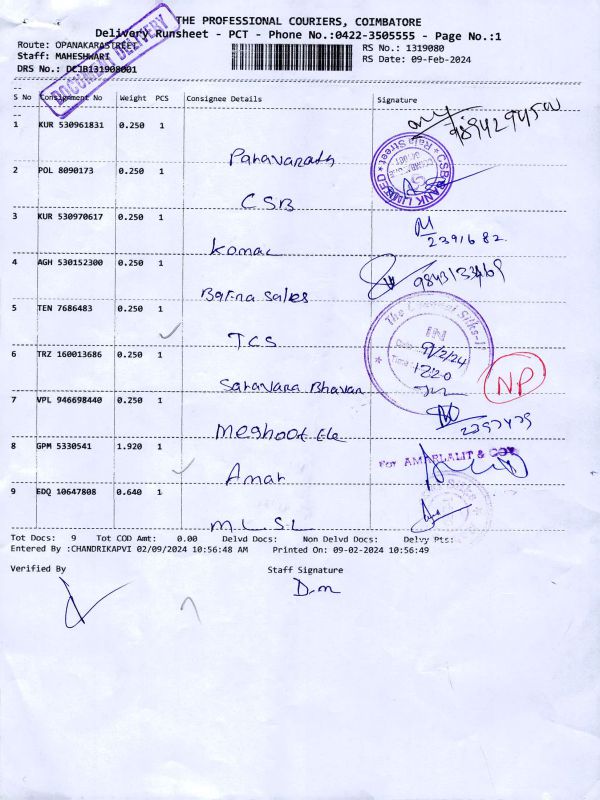 THE PROFESSIONAL COURIERS, COIMBATORE
Delivery Runsheet - PCT - Phone No.:0422-3505555 - Page No.:1
Route: OPANAKARASTREET
RS No.: 1319080
Staff: MAHESHWARI
RS Date: 09-Feb-2024
DRS No.: DCJB131908001
DOCUMENT DELIVERY
S No Consignment No Weight PCS Consignee Details Signature
1 KUR 530961831 0.250 1
9894294500
2 POL 8090173 0.250 1 CSB
CSB BANK LIMITED * Raja Street *
3 KUR 530970617 0.250 1 Komal
2391682
4 AGH 530152300 0.250 1 Sales
5 TEN 7686483 0.250 1 TCS
The Chennai Silks-II
IN
9/2/24
1220
6 TRZ 160013686 0.250 1 Saravana Bhavan
NP
7 VPL 946698440 0.250 1
2397479
8 GPM 5330541 1.920 1 Amar
For AMARLALIT & COY
9 EDQ 10647808 0.640 1 M.L.S.L
Tot Docs: 9 Tot COD Amt: 0.00 Delvd Docs: Non Delvd Docs: Delvy Pts:
Entered By :CHANDRIKAPVI 02/09/2024 10:56:48 AM Printed On: 09-02-2024 10:56:49
Verified By Staff Signature
D.m